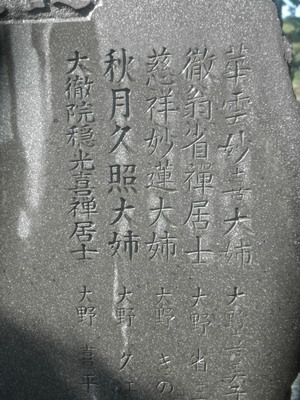 華雲妙喜大姉 大野
徹翁省禅居士 大野省三
慈祥妙蓮大姉 大野きの
秋月久照大姉 大野夕江
大徹院穏光喜禅居士 大野喜平